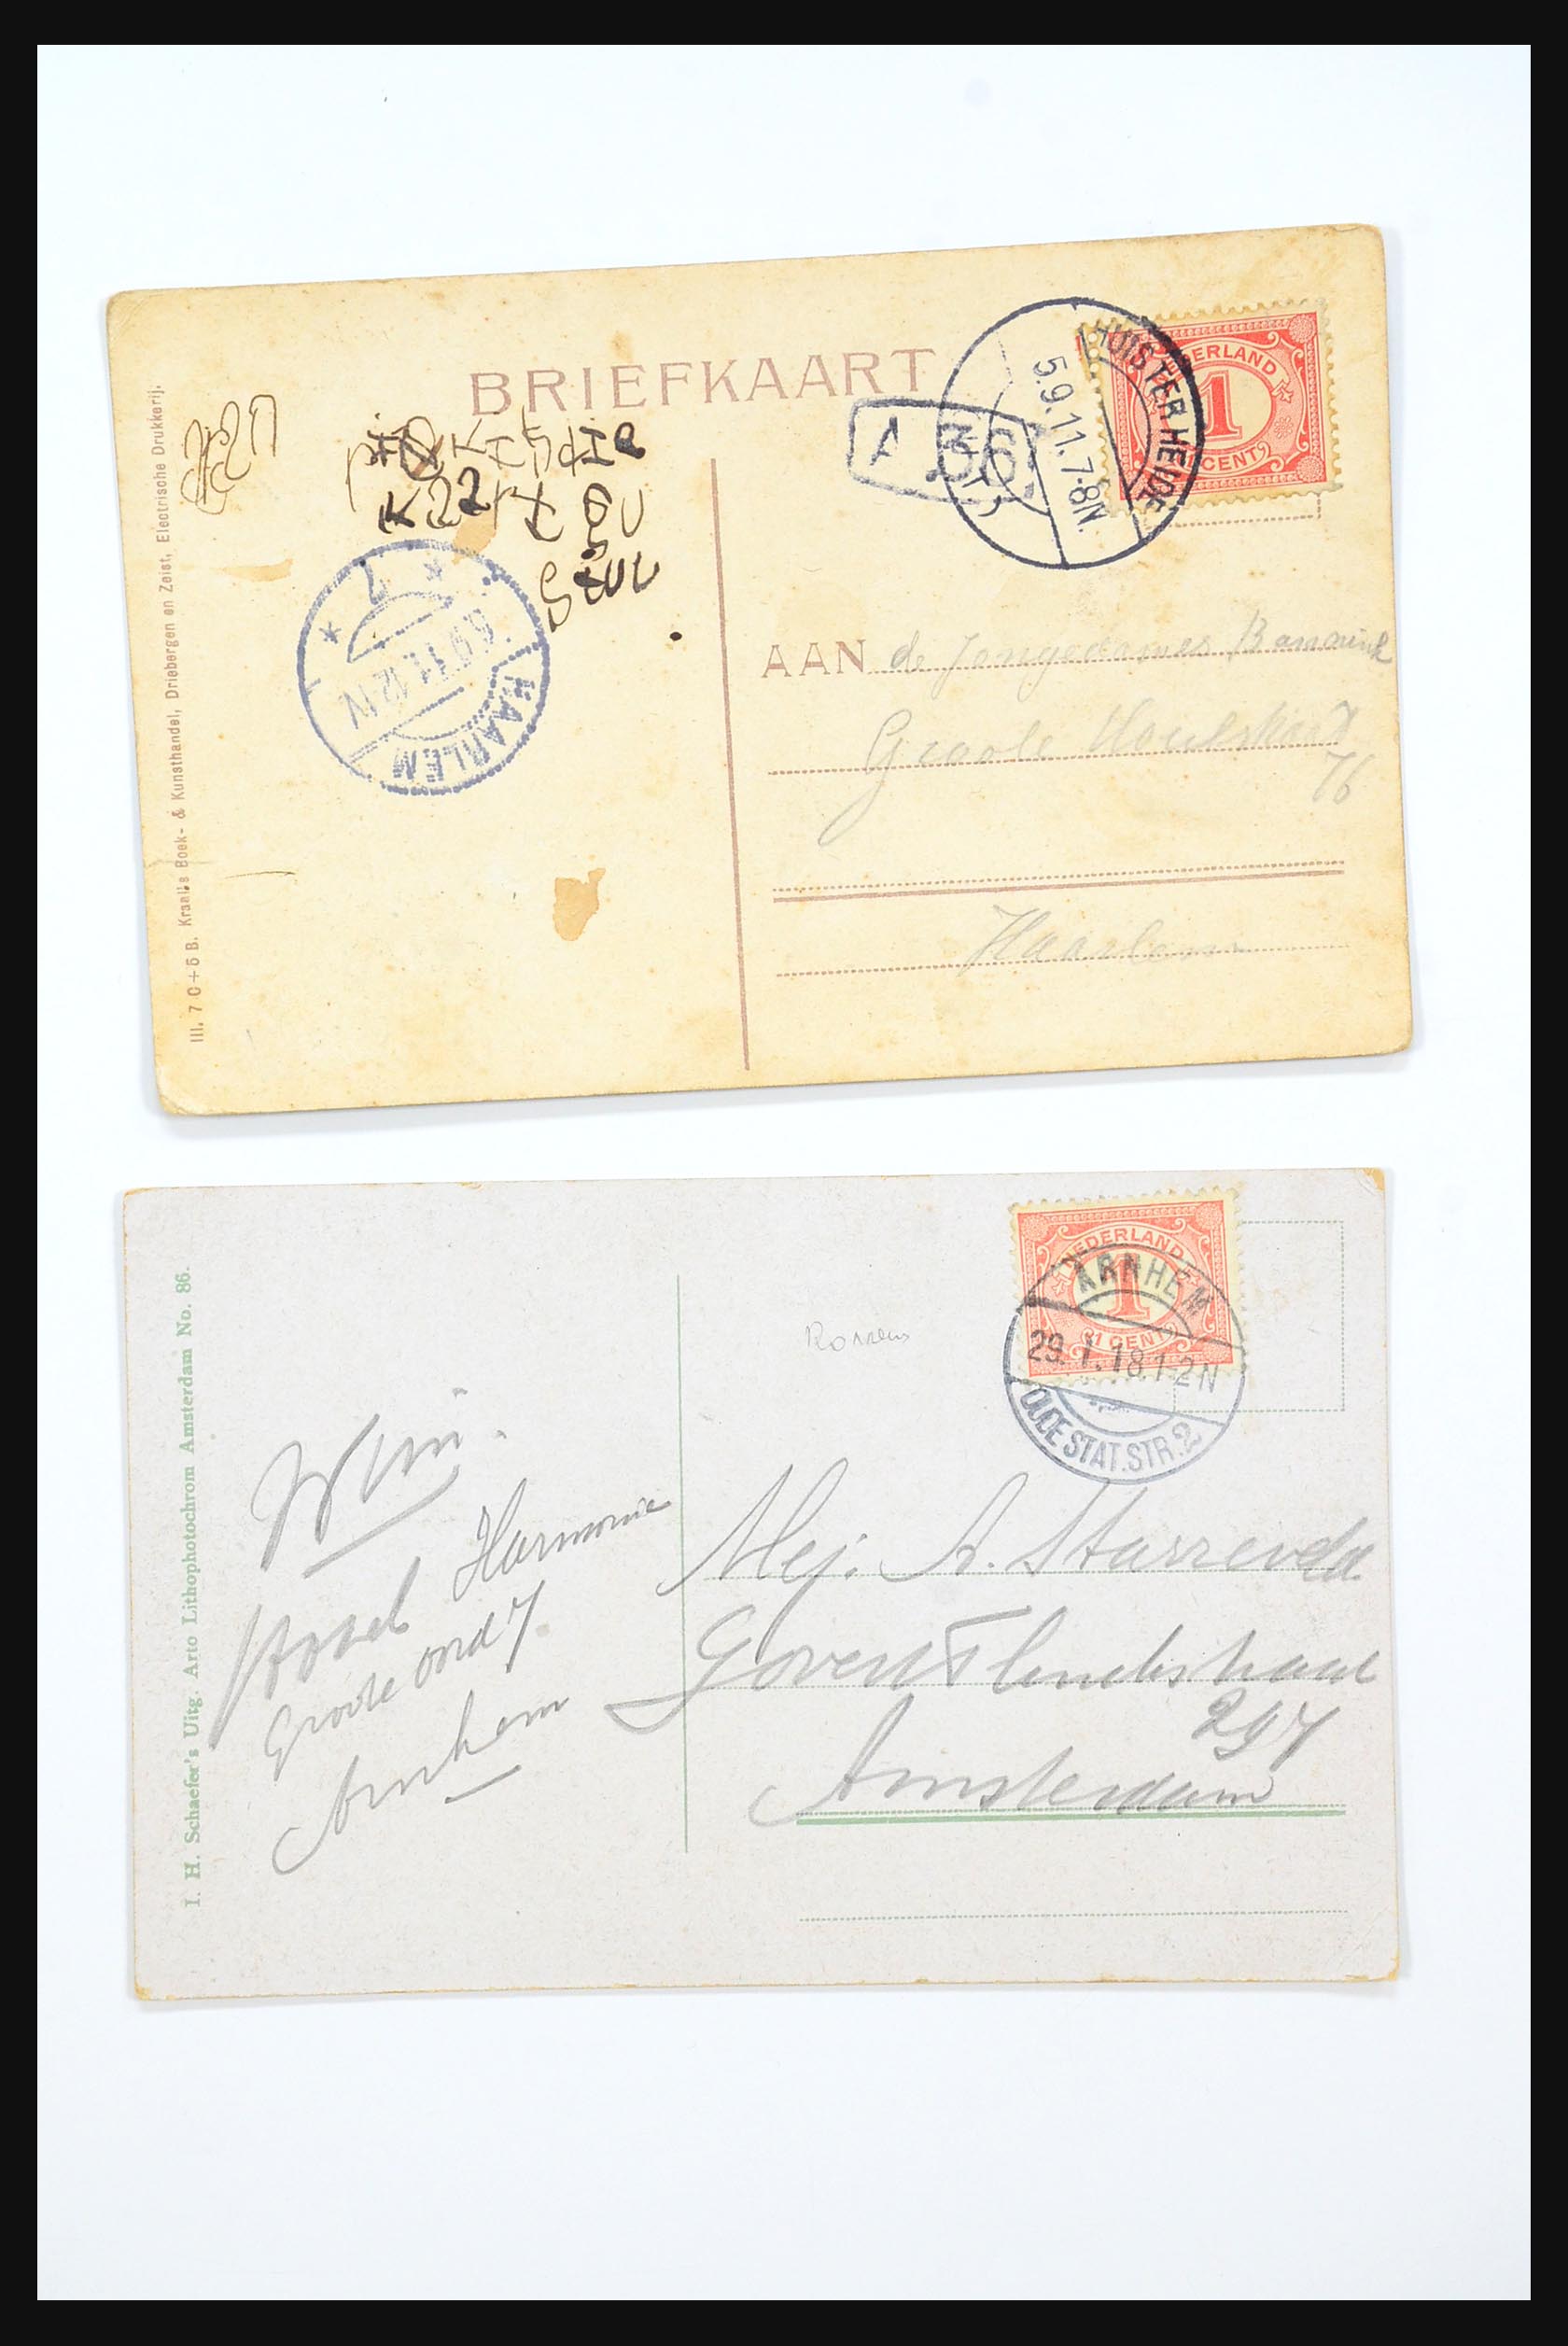 BRIEFKAART
NEDERLAND
1
CENT
HUISTER HEIDE
5.9.11.7-8N.
A 36.
HAARLEM
6.9.11.12N
1
AAN de Jongedames Bannink
Groote Houtstraat
76
Haarlem
III. 7 C+6 B. Kraal's Boek- & Kunsthandel, Driebergen en Zeist, Electrische Drukkerij.
NEDERLAND
1
1 CENT
ARNHEM
29.1.18.1-2N
OUDE STAT.STR.2
Wim.
Hotel Harmonie
Groote oord 7
Arnhem
Mej. A. Starreveld
Govert Flinckstraat
297
Amsterdam
I. H. Schaefer's Uitg. Arto Lithophotochrom Amsterdam No. 86.